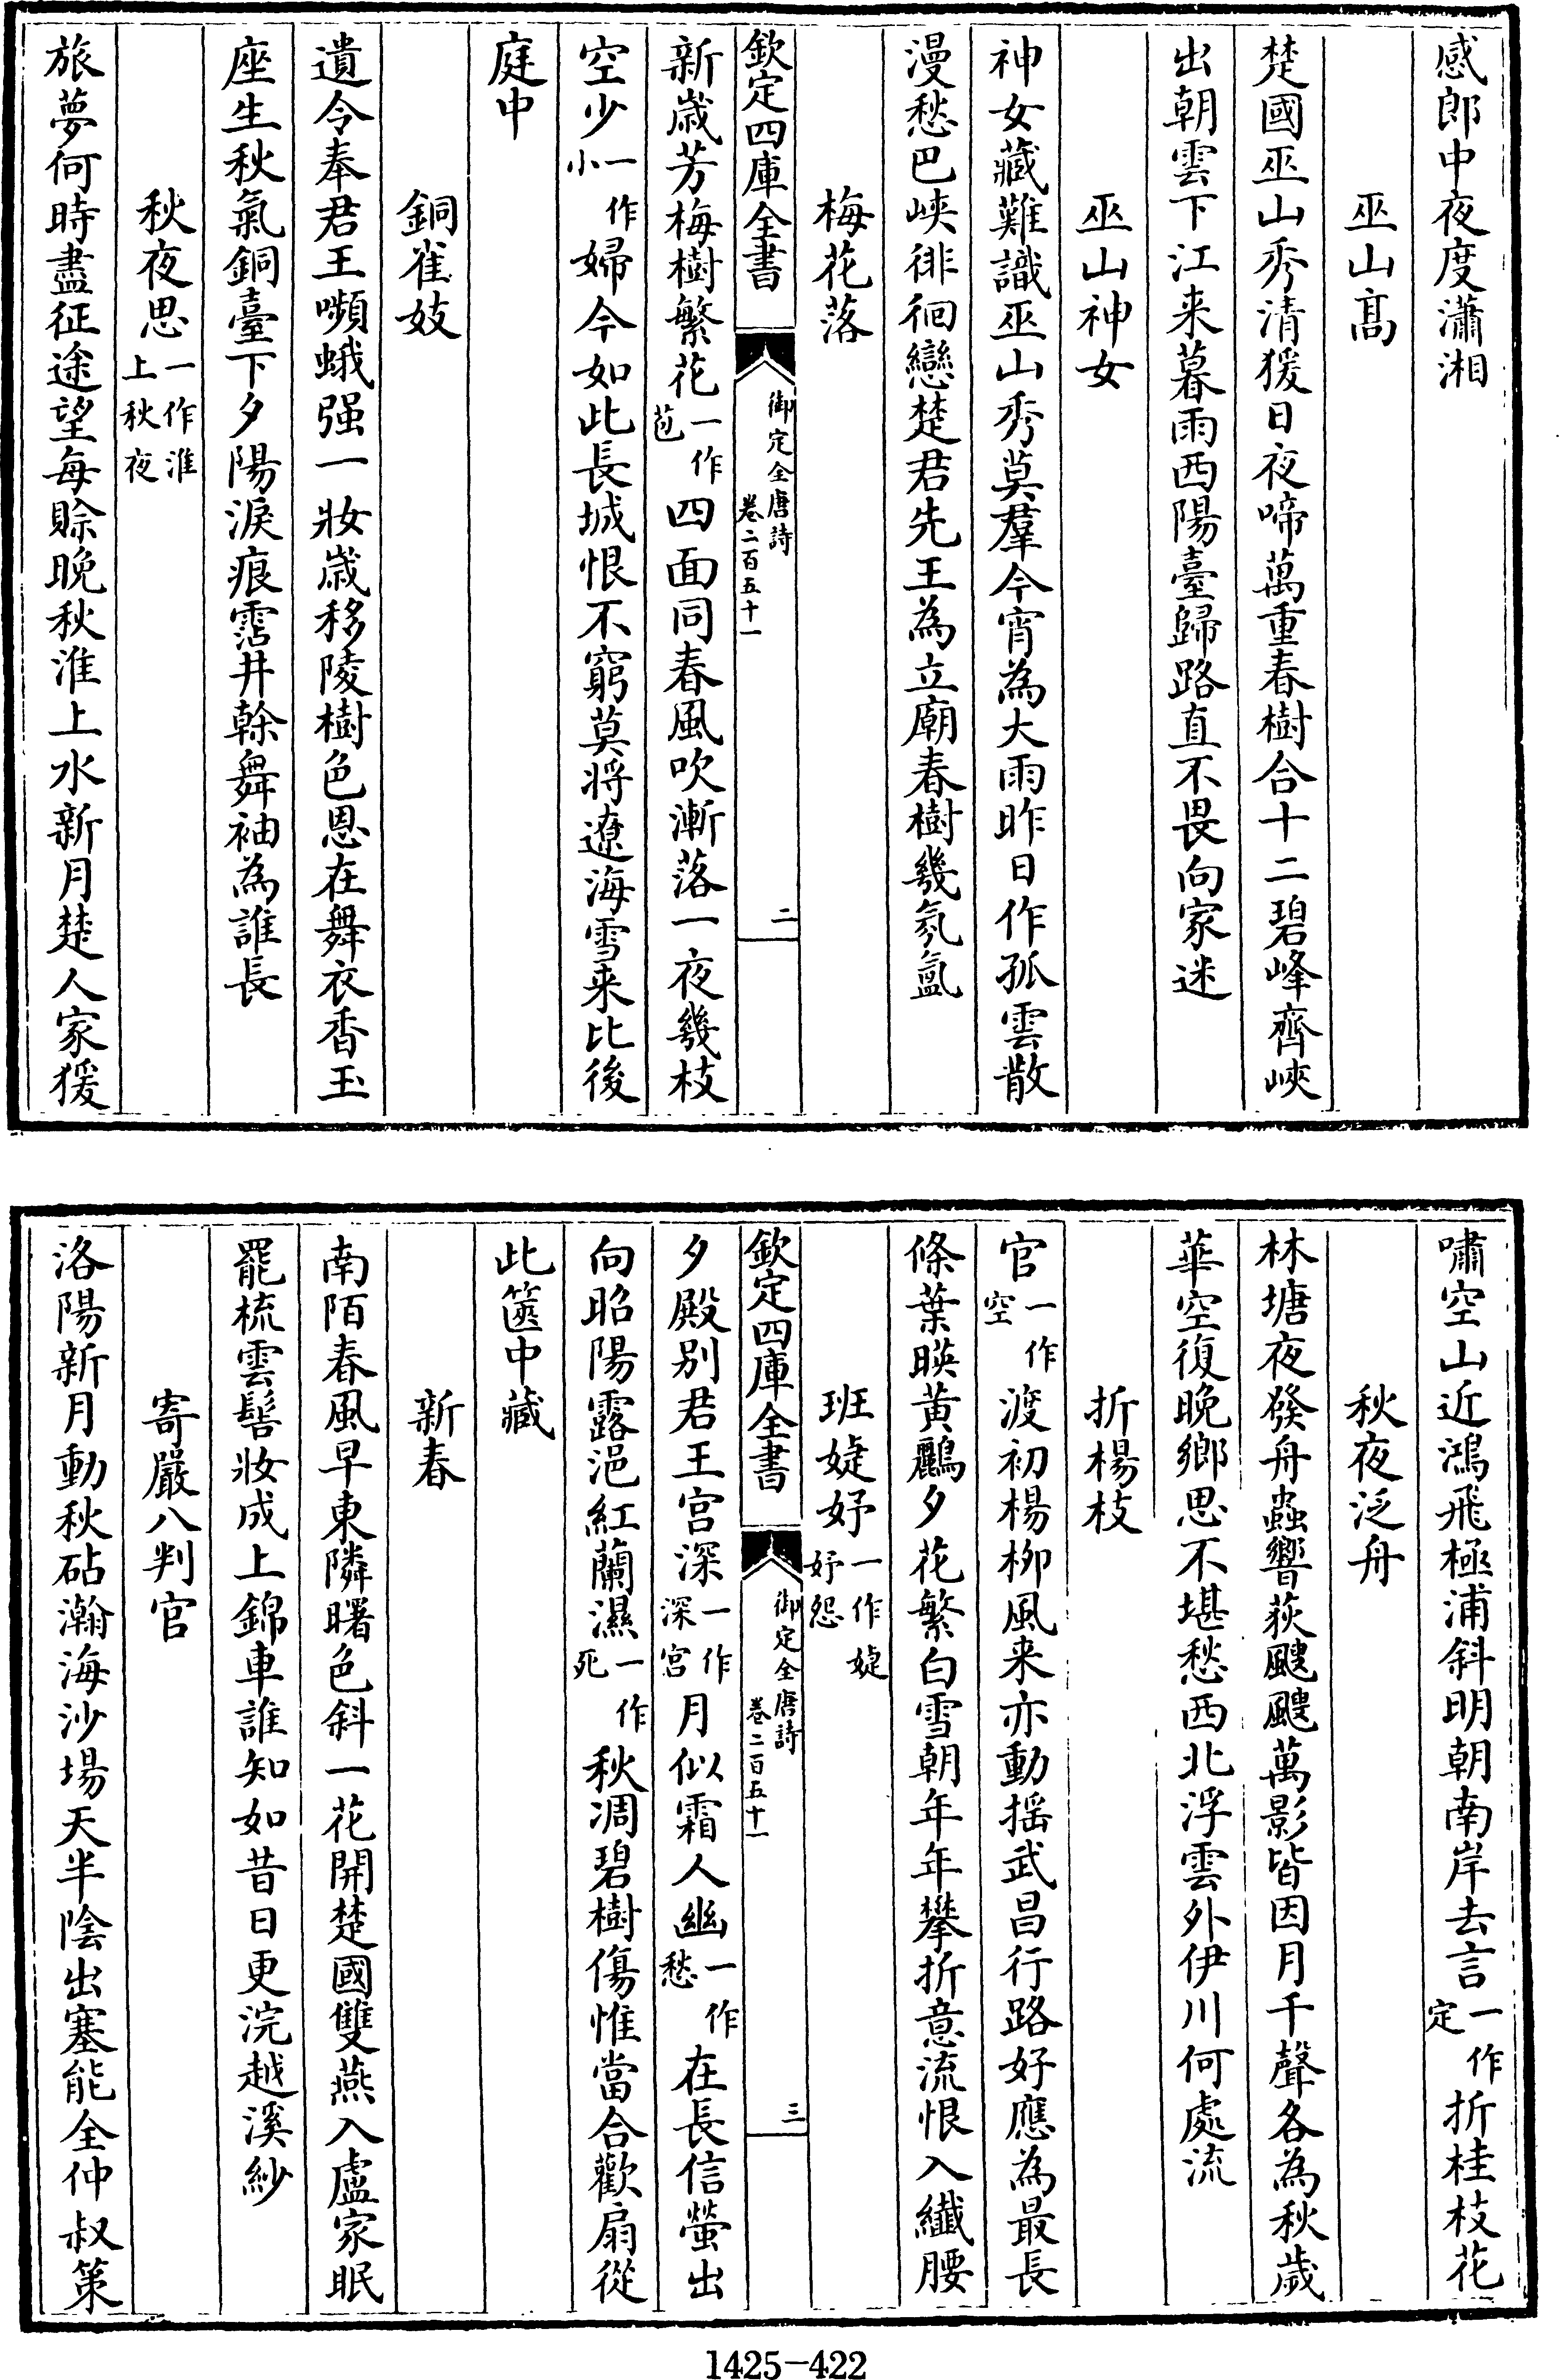 感郎中夜度瀟湘
巫山高
楚國巫山秀清猨日夜啼萬重春樹合十二碧峰齊峽
出朝雲下江来暮雨西陽臺歸路直不畏向家迷
巫山神女
神女藏難識巫山秀莫羣今宵為大雨昨日作孤雲散
漫愁巴峽徘徊戀楚君先王為立廟春樹幾氛氳
梅花落
欽定四庫全書
御定全唐詩
卷二百五十一
二
新歲芳梅樹繁花一作苞四面同春風吹漸落一夜幾枝
空少一作小婦今如此長城恨不窮莫將遼海雪来比後
庭中
銅雀妓
遺令奉君王嚬蛾强一妝歲移陵樹色恩在舞衣香玉
座生秋氣銅臺下夕陽淚痕霑井榦舞袖為誰長
秋夜思一作淮上秋夜
旅夢何時盡征途望每賒晚秋淮上水新月楚人家猨
嘯空山近鴻飛極浦斜明朝南岸去言一作定折桂枝花
秋夜泛舟
林塘夜發舟蟲響荻颼颼萬影皆因月千聲各為秋歲
華空復晚鄉思不堪愁西北浮雲外伊川何處流
折楊枝
官一作空渡初楊柳風来亦動揺武昌行路好應為最長
條葉暎黄鸝夕花繁白雪朝年年攀折意流恨入纎腰
班婕妤一作婕妤怨
欽定四庫全書
御定全唐詩
卷二百五十一
三
夕殿别君王宫深一作深宫月似霜人幽一作愁在長信螢出
向昭陽露浥紅蘭濕一作死秋凋碧樹傷惟當合歡扇從
此篋中藏
新春
南陌春風早東隣曙色斜一花開楚國雙燕入盧家眠
罷梳雲髻妝成上錦車誰知如昔日更浣越溪紗
寄嚴八判官
洛陽新月動秋砧瀚海沙場天半陰出塞能全仲叔策
1425-422